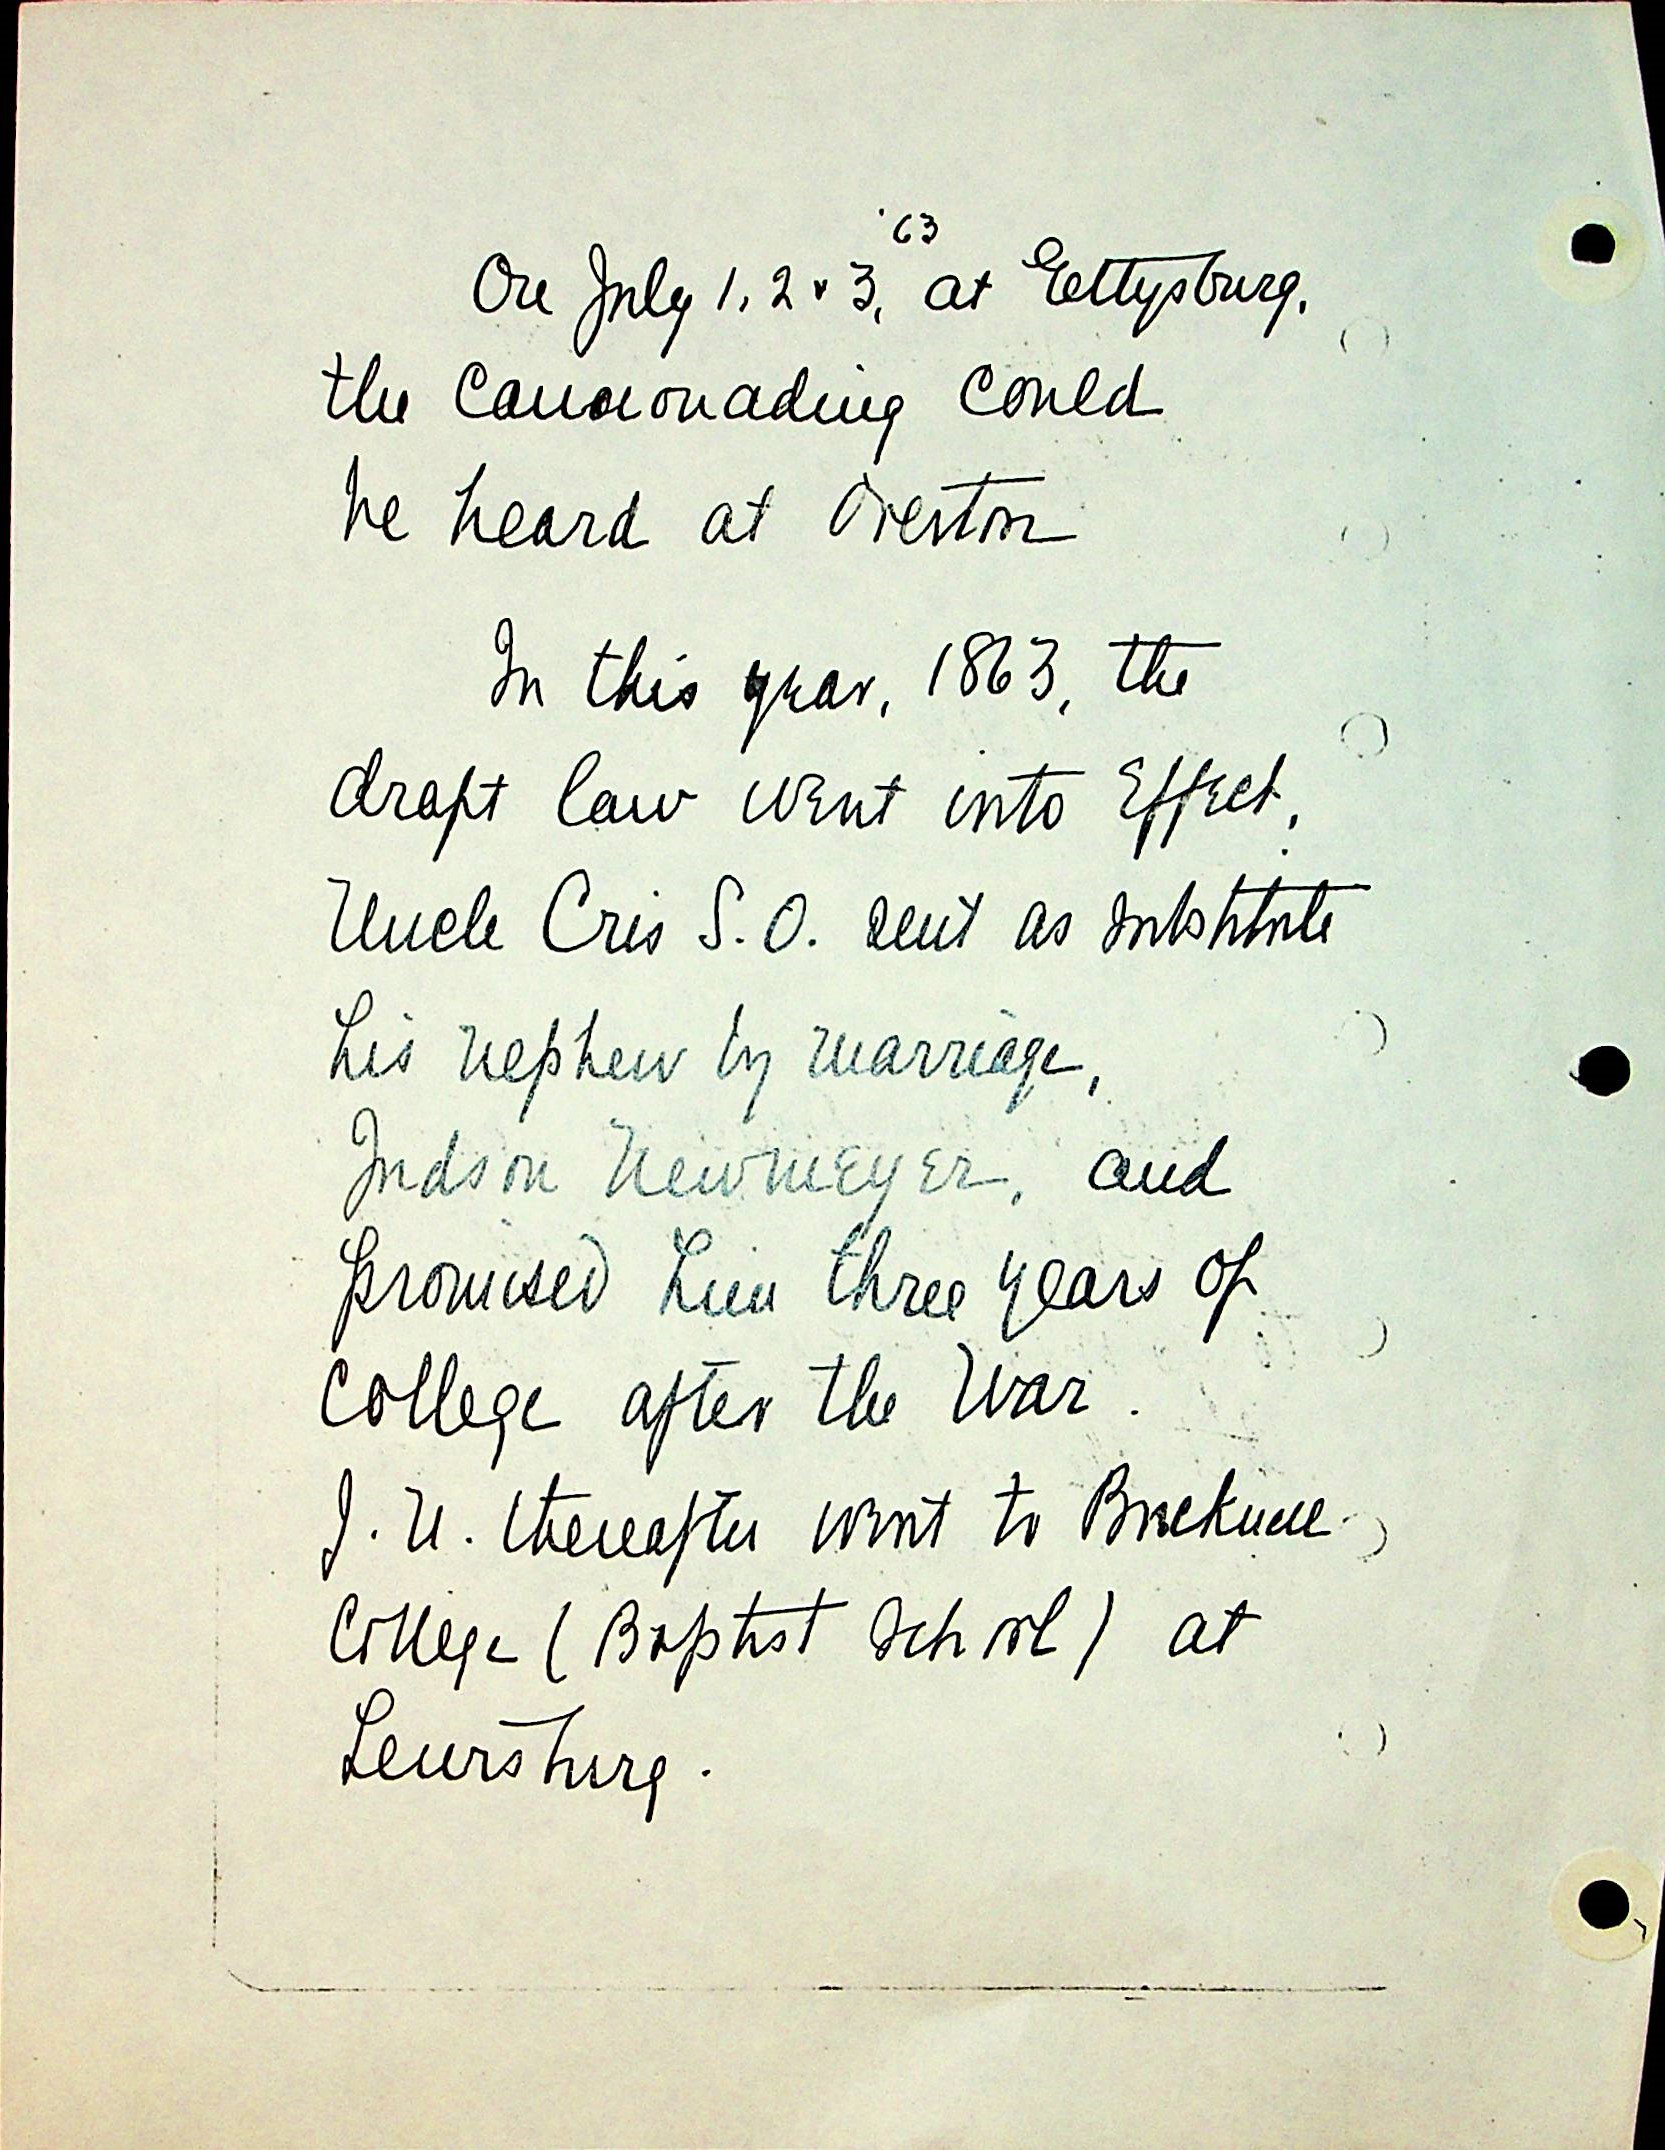 '63
On July 1, 2 & 3, at Gettysburg,
the Cannonading could
be heard at Overton
In this year, 1863, the
draft law went into Effect.
Uncle Cris S.O. sent as substitute
his nephew by marriage,
Judson Newmeyer, and
promised him three years of
College after the War.
J. N. thereafter went to Bucknell
College (Baptist School) at
Lewisburg.